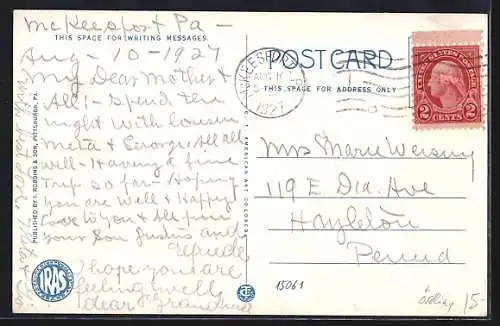 McKeesport Pa -
THIS SPACE FOR WRITING MESSAGES
Aug - 10 - 1927
My Dear Mother &
All :- Spend the
night with Cousin
Meta & George, All all
well - Having a fine
Trip so far - Hoping
you are Well & Happy
Love to you & All from
your Son Justus and
Elfriede
I hope you are
feeling well
dear Grandma
PUBLISHED BY I. ROBBINS & SON, PITTSBURGH, PA.
IRAS
C. T. AMERICAN ART COLORED
POST CARD
THIS SPACE FOR ADDRESS ONLY
MCKEESPORT
AUG 10
1927
UNITED STATES POSTAGE
2 CENTS 2
Mrs Marie
119 E Dia. Ave
Hazleton
Penna
15061
15-